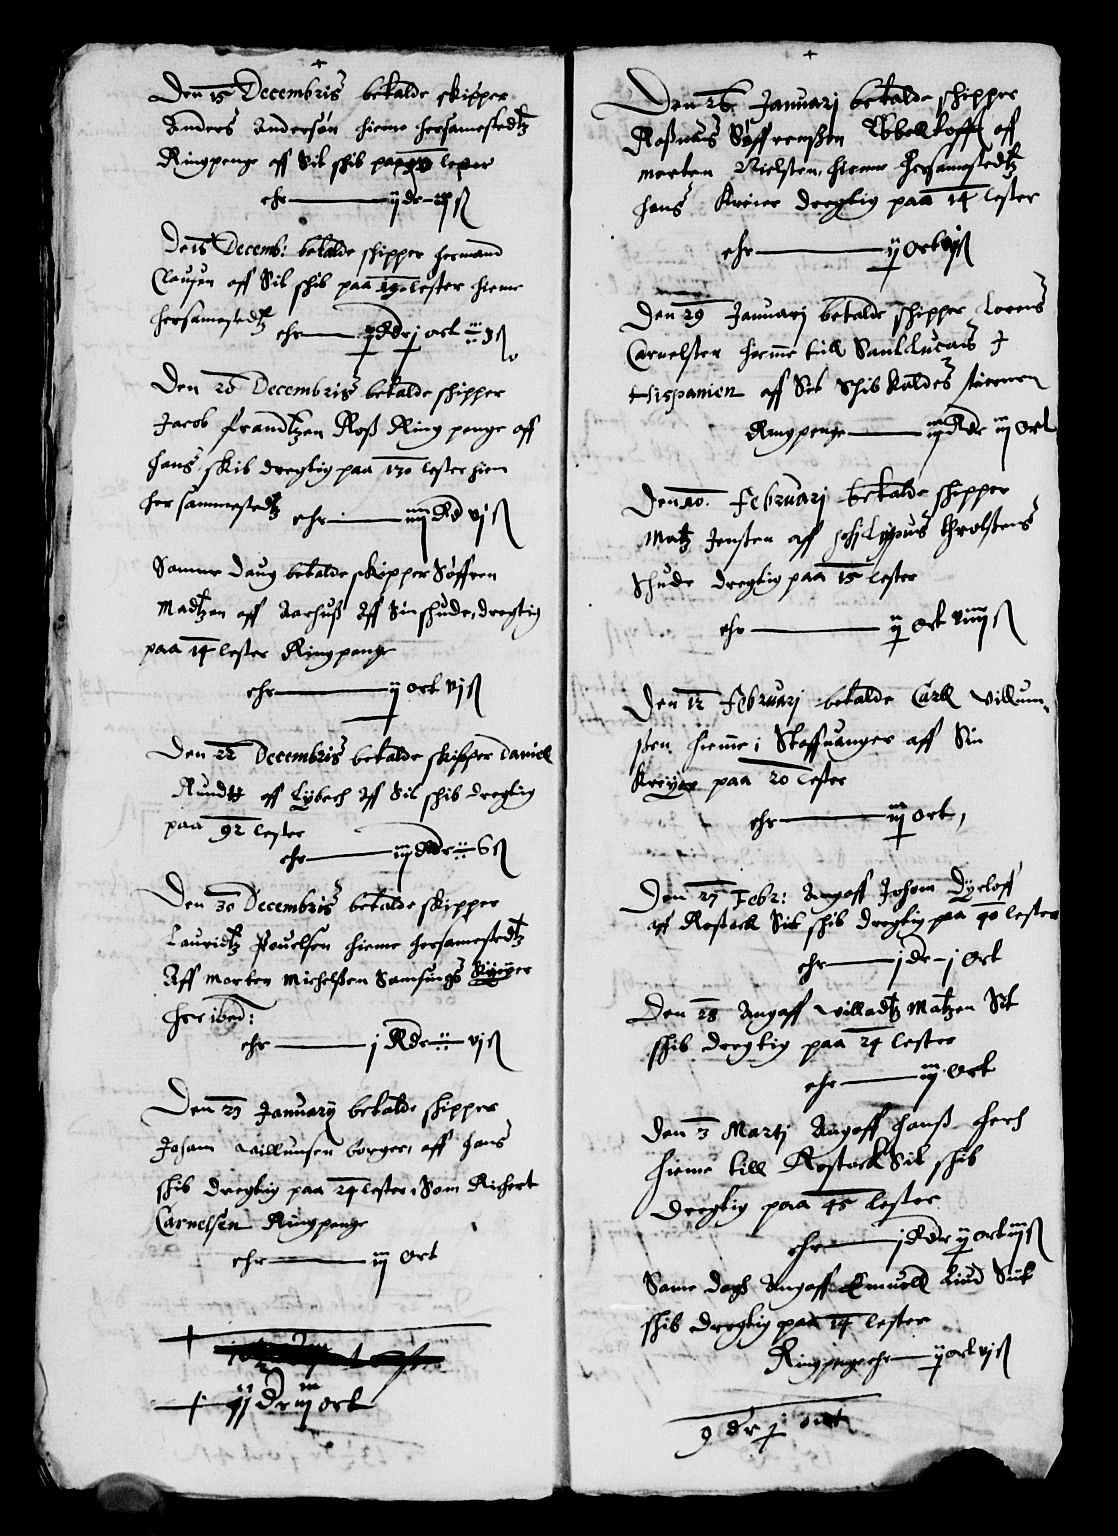 Den 15 Decembris betalde skipper
Anders Andersøn hieme hersamestedtz
Ringpenge aff Sit skib paa lester
ehr ij dr
Den Decemb: betalde skipper Hermand
Clausen aff Sit skib paa lester hieme
hersamestedtz ehr dr j ort
Den 20 Decembris betalde skipper
Jacob Frandtzen Roß Ring penge aff
hans skib dregtig paa 170 lester hiem
her sammestedtz ehr iiij Rd vj ß
Samme Daug betalde skipper Søffren
Madtzen aff Aarhuß Aff Sin skude, dregtig
paa 14 lester Ringpenge
ehr ij ort vj ß
Den 22 Decembris betalde skipper Daniell
Rundtt aff Lybech Aff Sit skib dregtig
paa 92 lester
ehr iij dr 6 ß
Den 30 Decembris betalde skipper
Lauridtz Pouelsen hieme hersamestedtz
Aff Morten Michelßen Samsings
her ibed:
ehr j Rdr vj ß
Den 23 Januarij betalde skipper
Johan Willumsen borger, aff hans
skib dregtig paa 24 lester, Som Richert
Carnelsen Ringpenge
ehr iij ort
dr iij ort
Den 26 Januarj betalde skipper
Raßmus Søffrenßen Ebbelkofft aff
Morten Nielsen, hieme hersamestedtz
hans Kreier dregtig paa 14 lester
ehr ij ort vj ß
Den 29 Januarj betalde skipper Lorens
Carnelsen hieme till Sanct Lucas J
Hispanien aff Sit Skib kaldes
Ringpenge Rdr iij ort
Den 10 Februarj betalde skipper
Matz Jensen aff Throlsens
Skude dregtig paa 15 lester
ehr ij ort viiij ß
Den 12 Februarj betalde Carll Villum-
ßen hieme i Staffuanger aff Sin
Kreyer paa 20 lester
ehr iij ort
Den 27 Febr: Angaff Johan Dyrloff
aff Rostock Sit skib dregtig paa 40 lester
ehr j dr j ort
Den 28 Angaff Villadtz Matzen Sit
skib dregtig paa 24 lester
ehr iij ort
Den 3 Martj Angaff Hanß
hieme till Rostock Sit skib
dregtig paa 45 lester
ehr j Rdr ij ort iij ß
Same dagh Angaff Emuell Liud Sit
skib dregtig paa 14 lester
Ringpenge ehr ij ort vj ß
9 dr j ort